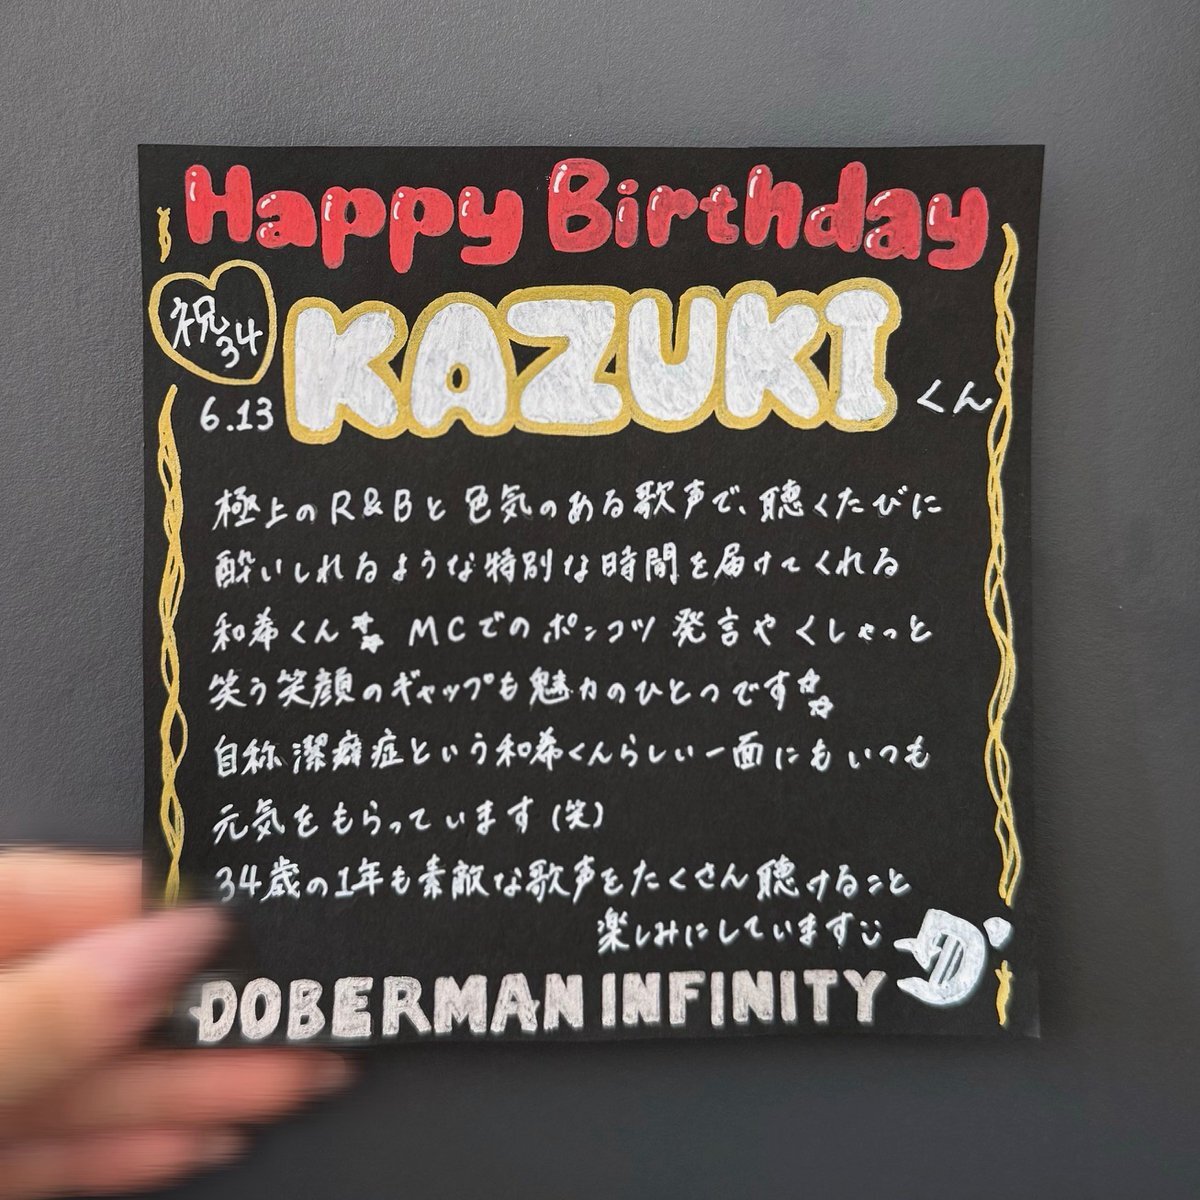 Happy Birthday
祝34
6.13
KAZUKI
くん
極上のR&Bと色気のある歌声で、聴くたびに
酔いしれるような特別な時間を届けてくれる
和希くん MCでのポンコツ発言やくしゃっと
笑う笑顔のギャップも魅力のひとつです
自称潔癖症という和希くんらしい一面にもいつも
元気をもらっています(笑)
34歳の1年も素敵な歌声をたくさん聴けること
楽しみにしています
DOBERMAN INFINITY
D